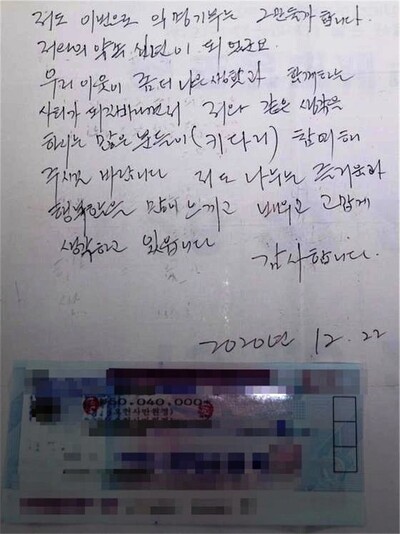 저도 이번으로 익명기부는 그만둘가 합니다.
저와의 약속 십년이 되였군요
우리 이웃이 좀더 나은 생활과 함께하는
사회가 되길바라면서 저와 같은 생각을
하시는 많은 분들이 (키다리) 함께해
주시길 바랍니다 저도 나누는 즐거움과
행복함을 많이 느끼고 배우고 고맙게
생각하고 있습니다
감사합니다.
2020년 12. 22
₩50.040.000